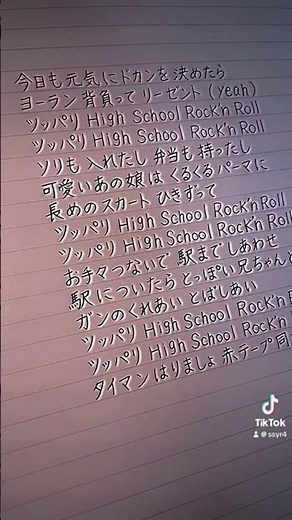 今日も元気にドカンを決めたら
ヨーラン背負ってリーゼント(yeah)
ツッパリ High School Rock'n Roll
ツッパリ High School Rock'n Roll
ソリも入れたし弁当も持ったし
可愛いあの娘はくるくるパーマに
長めのスカートひきずって
ツッパリ High School Rock'n Roll
ツッパリ High School Rock'n Roll
お手々つないで駅までしあわせ
駅についたらとっぽい兄ちゃんと
ガンのくれあいとばしあい
ツッパリ High School Rock'n
ツッパリ High School Rock'n
タイマンはりましょ赤テープ同
TikTok
@ssyr4